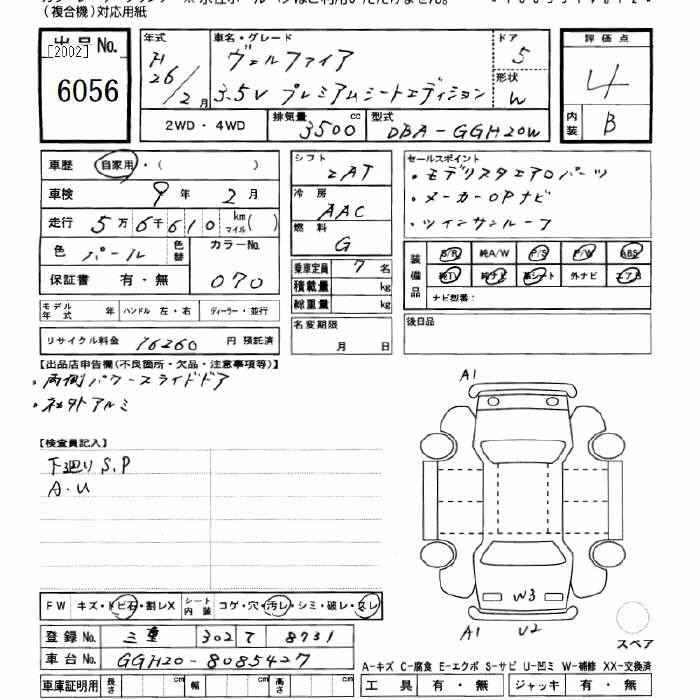 (複合機)対応用紙
出品No.
[2002]
6056
年式 H26/2月
車名・グレード ヴェルファイア
3.5V プレミアムシートエディション
ドア 5
形状 W
2WD・4WD
排気量 3500 cc
型式 DBA-GGH20W
評価点
4
内装 B
車歴 自家用・( )
車検 9年 2月
走行 5万6千610 km マイル( )
色 パール 色替 カラーNo. 070
保証書 有・無
モデル年式 年 ハンドル 左・右 ディーラー・並行
リサイクル料金 16260 円 預託済
シフト
冷房 AAC
燃料 G
乗車定員 7 名
積載量 kg
総重量 kg
名変期限
月 日
セールスポイント
・モデリスタエアロパーツ
・メーカーOPナビ
・ツインサンルーフ
装備品
S/R 純A/W P/S P/W ABS
純TV 純ナビ 革シート 外ナビ エアB
ナビ型番:
後日品
【出品店申告欄(不良箇所・欠品・注意事項等)】
・両側パワースライドドア
・社外アルミ
【検査員記入】
下廻りS.P
A・U
A1
W3
A1 U2
スペア
FW キズ・トビ石・割レX シート内装 コゲ・穴・汚レ・シミ・破レ・スレ
登録No. 三重 302 て 8731
車台No. GGH20-8085427
車庫証明用 長さ cm 幅 cm 高さ cm
A-キズ C-腐食 E-エクボ S-サビ U-凹ミ W-補修 XX-交換済
工具 有・無 ジャッキ 有・無